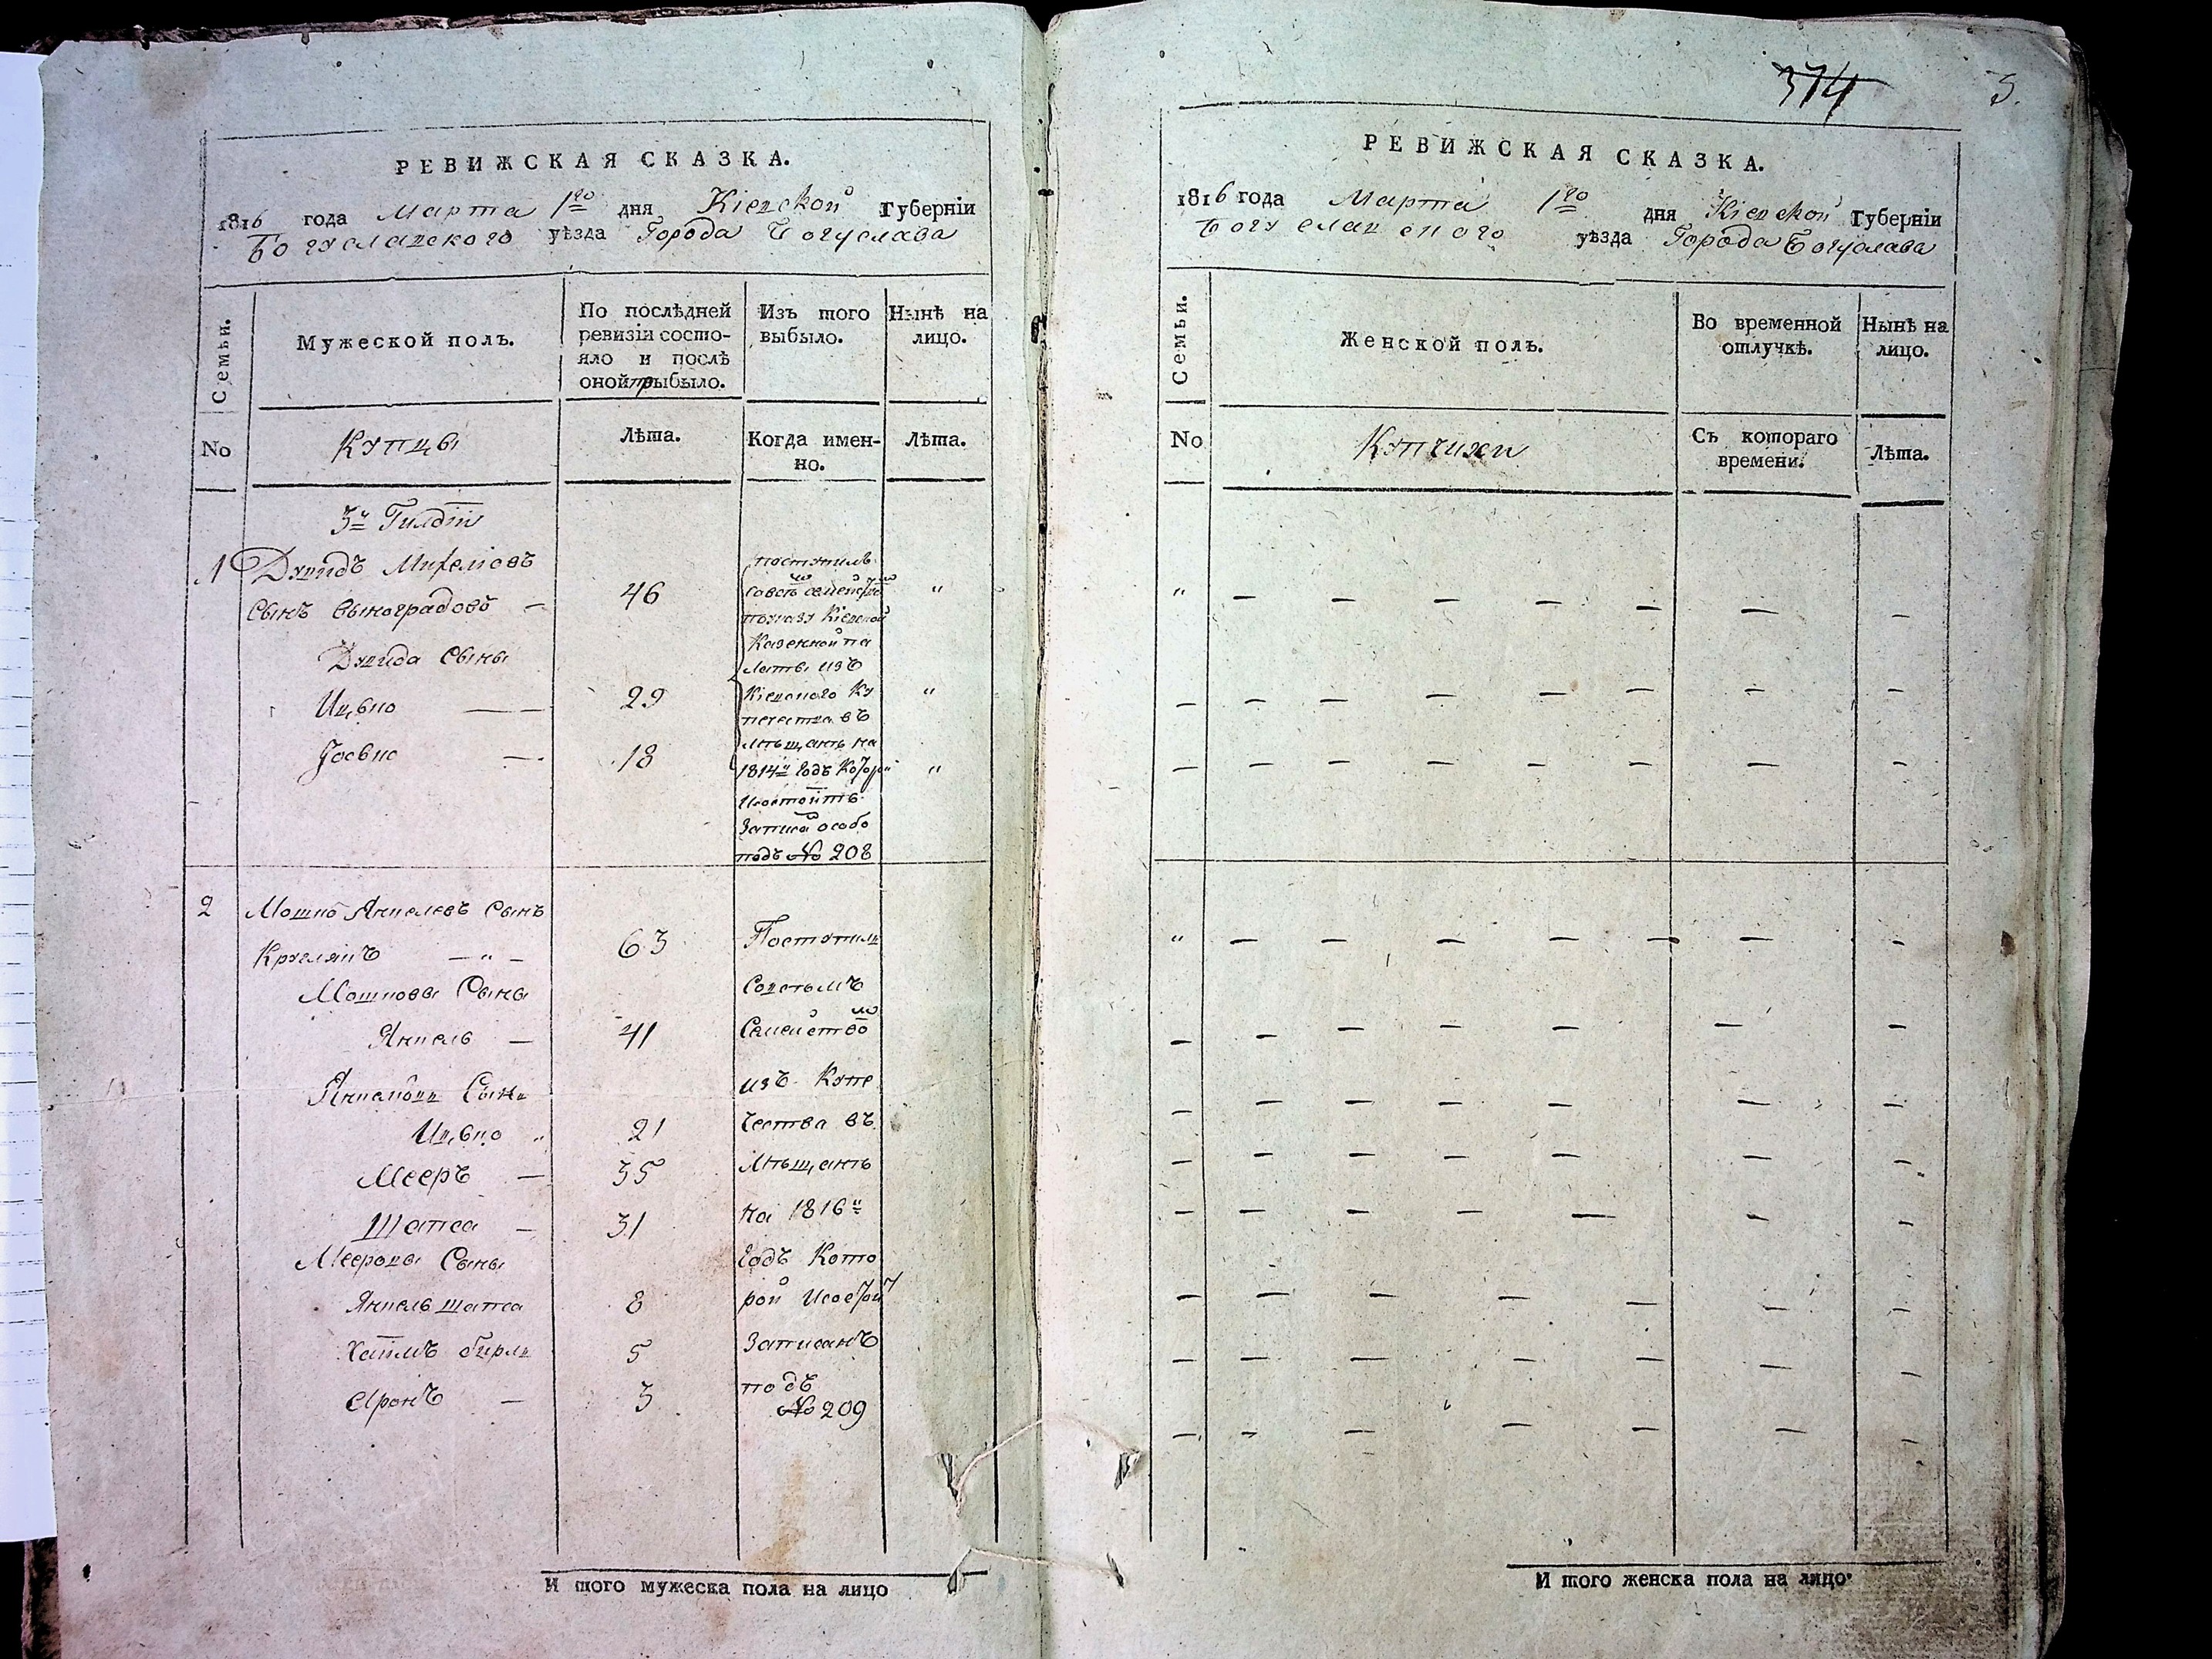 РЕВИЖСКАЯ СКАЗКА.
1816 года Марта 1го дня Кіевской Губерніи
Богуславского уѣзда Города Богуслава
Семьи.
Мужеской полъ.
По послѣдней ревизіи состо-
яло и послѣ
оной прыбыло.
Изъ того
выбыло.
Нынѣ на
лицо.
No
Купцы
Лѣта.
Когда имен-
но.
Лѣта.
3й Гилдіи
1 Дувидъ
сынъ Выноградовъ — 46
Дувида Сыны
Ицько — 29
Іосько — 18
поступилъ
Кіевской
Казенной па
латы изъ
Кіевского Ку
печества въ
мѣщанъ на
1814й годъ
Записа особо
подъ № 208
2 Мошко Анкелевъ Сынъ
Круглякъ — " — 63
Мошковы Сыны
Янкель — 41
Сыны
Ицько " 21
Мееръ — 35
Шапса — 31
Мееровы Сыны
Янкель шапса 8
Хаимъ берла 5
Аронъ — 3
Поступилъ
Совсемъ
Семейство
изъ Купе
чества въ
Мѣщанъ
на 1816й
годъ Кото
рой
Записанъ
подъ
№ 209
И того мужеска пола на лицо
374
3.
РЕВИЖСКАЯ СКАЗКА.
1816 года Марта 1го дня Кіевской Губерніи
Богуславского уѣзда Города Богуслава
Семьи.
Женской полъ.
Во временной
отлучкѣ.
Нынѣ на
лицо.
No
Купчихи
Съ котораго
времени.
Лѣта.
И того женска пола на лицо